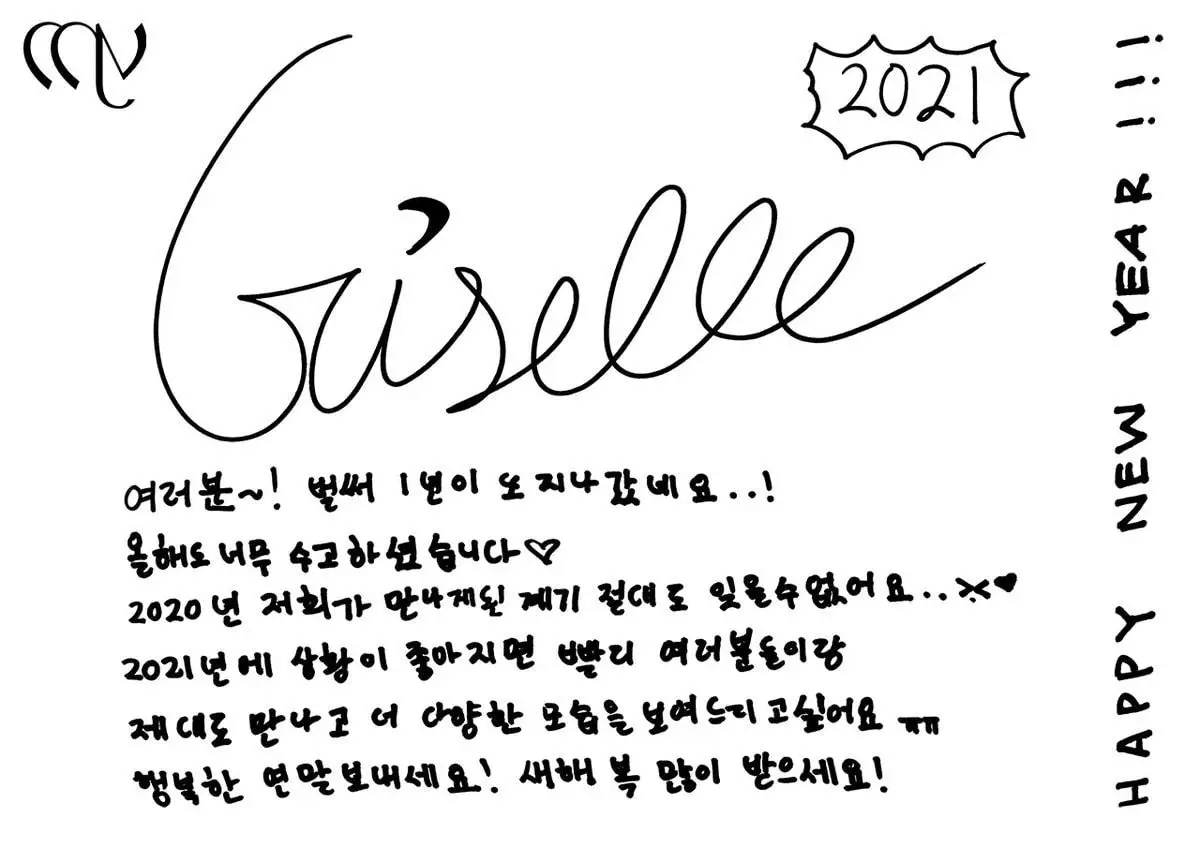 2021
Giselle
여러분~! 벌써 1년이 또 지나갔네요..!
올해도 너무 수고하셨습니다♡
2020년 저희가 만나게된 계기 절대로 잊을수없어요..※♥
2021년에 상황이 좋아지면 빨리 여러분들이랑
제대로 만나고 더 다양한 모습을 보여드리고싶어요 ㅠㅠ
행복한 연말보내세요! 새해 복 많이 받으세요!
HAPPY NEW YEAR!!!